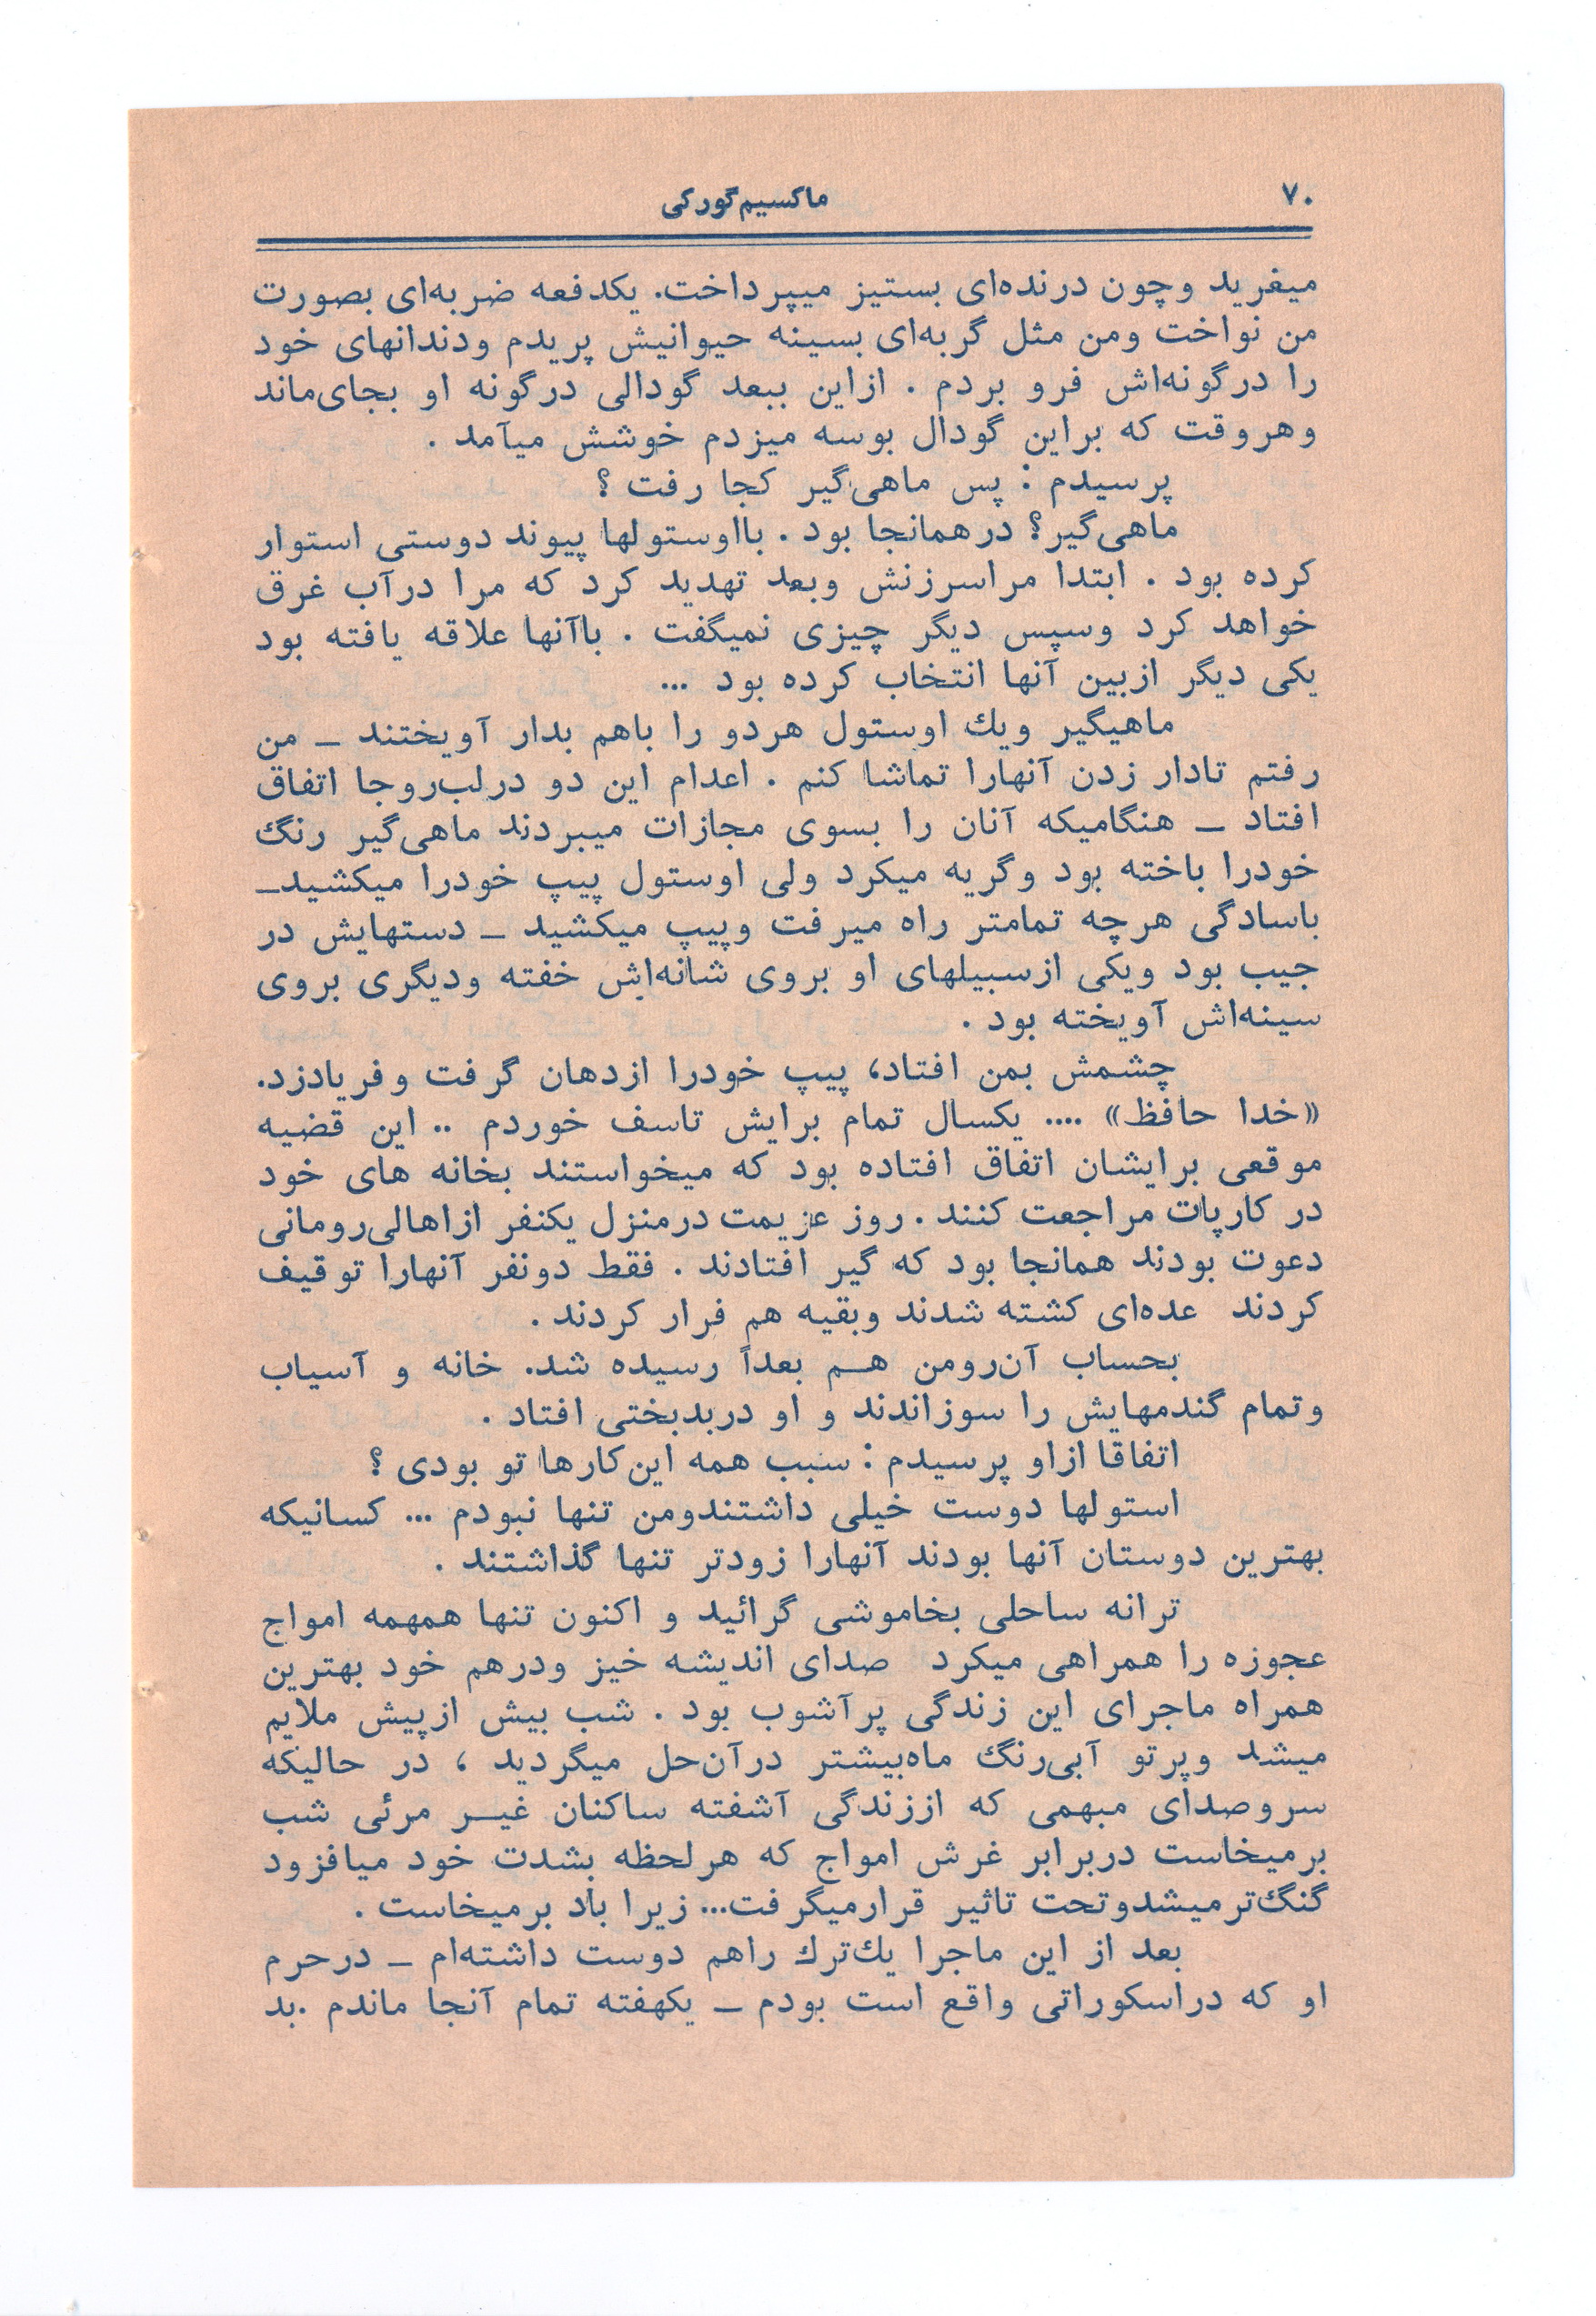 ۷۰
ماکسیم‌گورکی
میغرید وچون درنده‌ای بستیز میپرداخت. یکدفعه ضربه‌ای بصورت
من نواخت ومن مثل گربه‌ای بسینه حیوانیش پریدم ودندانهای خود
را درگونه‌اش فرو بردم . ازاین ببعد گودالی درگونه او بجای‌ماند
وهروقت که براین گودال بوسه میزدم خوشش میآمد .
پرسیدم : پس ماهی‌گیر کجا رفت ؟
ماهی‌گیر؟ درهمانجا بود . بااوستولها پیوند دوستی استوار
کرده بود . ابتدا مراسرزنش وبعد تهدید کرد که مرا درآب غرق
خواهد کرد وسپس دیگر چیزی نمیگفت . باآنها علاقه یافته بود
یکی دیگر ازبین آنها انتخاب کرده بود ...
ماهیگیر ویك اوستول هردو را باهم بدار آویختند ــ من
رفتم تادار زدن آنهارا تماشا کنم . اعدام این دو درلب‌روجا اتفاق
افتاد ــ هنگامیکه آنان را بسوی مجازات میبردند ماهی‌گیر رنگ
خودرا باخته بود وگریه میکرد ولی اوستول پیپ خودرا میکشید ــ
باسادگی هرچه تمامتر راه میرفت وپیپ میکشید ــ دستهایش در
جیب بود ویکی ازسبیلهای او بروی شانه‌اش خفته ودیگری بروی
سینه‌اش آویخته بود .
چشمش بمن افتاد، پیپ خودرا ازدهان گرفت وفریادزد.
«خدا حافظ» .... یکسال تمام برایش تاسف خوردم .. این قضیه
موقعی برایشان اتفاق افتاده بود که میخواستند بخانه های خود
در کارپات مراجعت کنند . روز عزیمت درمنزل یکنفر ازاهالی‌رومانی
دعوت بودند همانجا بود که گیر افتادند . فقط دونفر آنهارا توقیف
کردند عده‌ای کشته شدند وبقیه هم فرار کردند .
بحساب آن‌رومن هـم بعداً رسیده شد. خانه و آسیاب
وتمام گندمهایش را سوزاندند و او دربدبختی افتاد .
اتفاقا ازاو پرسیدم : سبب همه این‌کارها تو بودی ؟
استولها دوست خیلی داشتندومن تنها نبودم ... کسانیکه
بهترین دوستان آنها بودند آنهارا زودتر تنها گذاشتند .
ترانه ساحلی بخاموشی گرائید و اکنون تنها همهمه امواج
عجوزه را همراهی میکرد صدای اندیشه خیز ودرهم خود بهترین
همراه ماجرای این زندگی پرآشوب بود . شب بیش ازپیش ملایم
میشد وپرتو آبی‌رنگ ماه‌بیشتر درآن‌حل میگردید ، در حالیکه
سروصدای مبهمی که اززندگی آشفته ساکنان غیـر مرئی شب
برمیخاست دربرابر غرش امواج که هرلحظه بشدت خود میافزود
گنگ‌ترمیشدوتحت تاثیر قرارمیگرفت... زیرا باد برمیخاست .
بعد از این ماجرا یك‌ترك راهم دوست داشته‌ام ــ درحرم
او که دراسکوراتی واقع است بودم ــ یکهفته تمام آنجا ماندم .بد